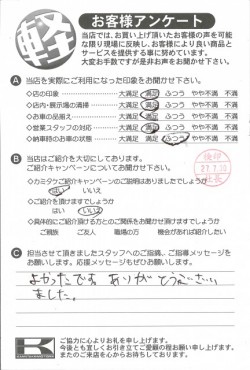 軽
お客様アンケート
当店では、お買い上げ頂いたお客様の声を可能
な限り現場に反映し、お客様により良い商品と
サービスを提供する事に努めています。
大変お手数ですが是非お声をお聞かせ下さい。
A 当店を実際にご利用になった印象をお聞かせ下さい。
◇店の印象 大満足 満足 ふつう やや不満 不満
◇店内・展示場の清掃 大満足 満足 ふつう やや不満 不満
◇お車の品揃え 大満足 満足 ふつう やや不満 不満
◇営業スタッフの対応 大満足 満足 ふつう やや不満 不満
◇納車時のお車の状態 大満足 満足 ふつう やや不満 不満
B 当店はご紹介を大切にしております。
ご紹介キャンペーンについてお聞かせ下さい。
◇カミタケご紹介キャンペーンのご説明はありましたでしょうか
はい いいえ
◇ご紹介を頂けますでしょうか
はい いいえ
◇具体的にご紹介頂ける方とのご関係をお聞かせ頂けますでしょうか
ご親族 ご友人 職場の方 機会があれば紹介したい
C 担当させて頂きましたスタッフへのご指摘、ご指導メッセージを
お願いします。応援メッセージもぜひお願いします。
よかったです ありがとうございい
ました。
K
ご協力に心よりお礼を申し上げます。
今後とも宜しくお引き立てご愛顧の程お願い申し上げます。
またのご来店を心からお待ちしております。